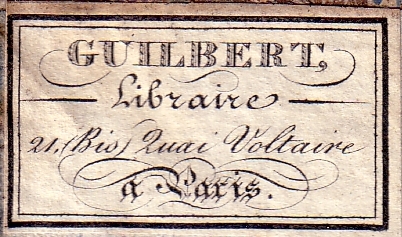 GUILBERT,
Libraire
21, (Bis) Quai Voltaire
à Paris.